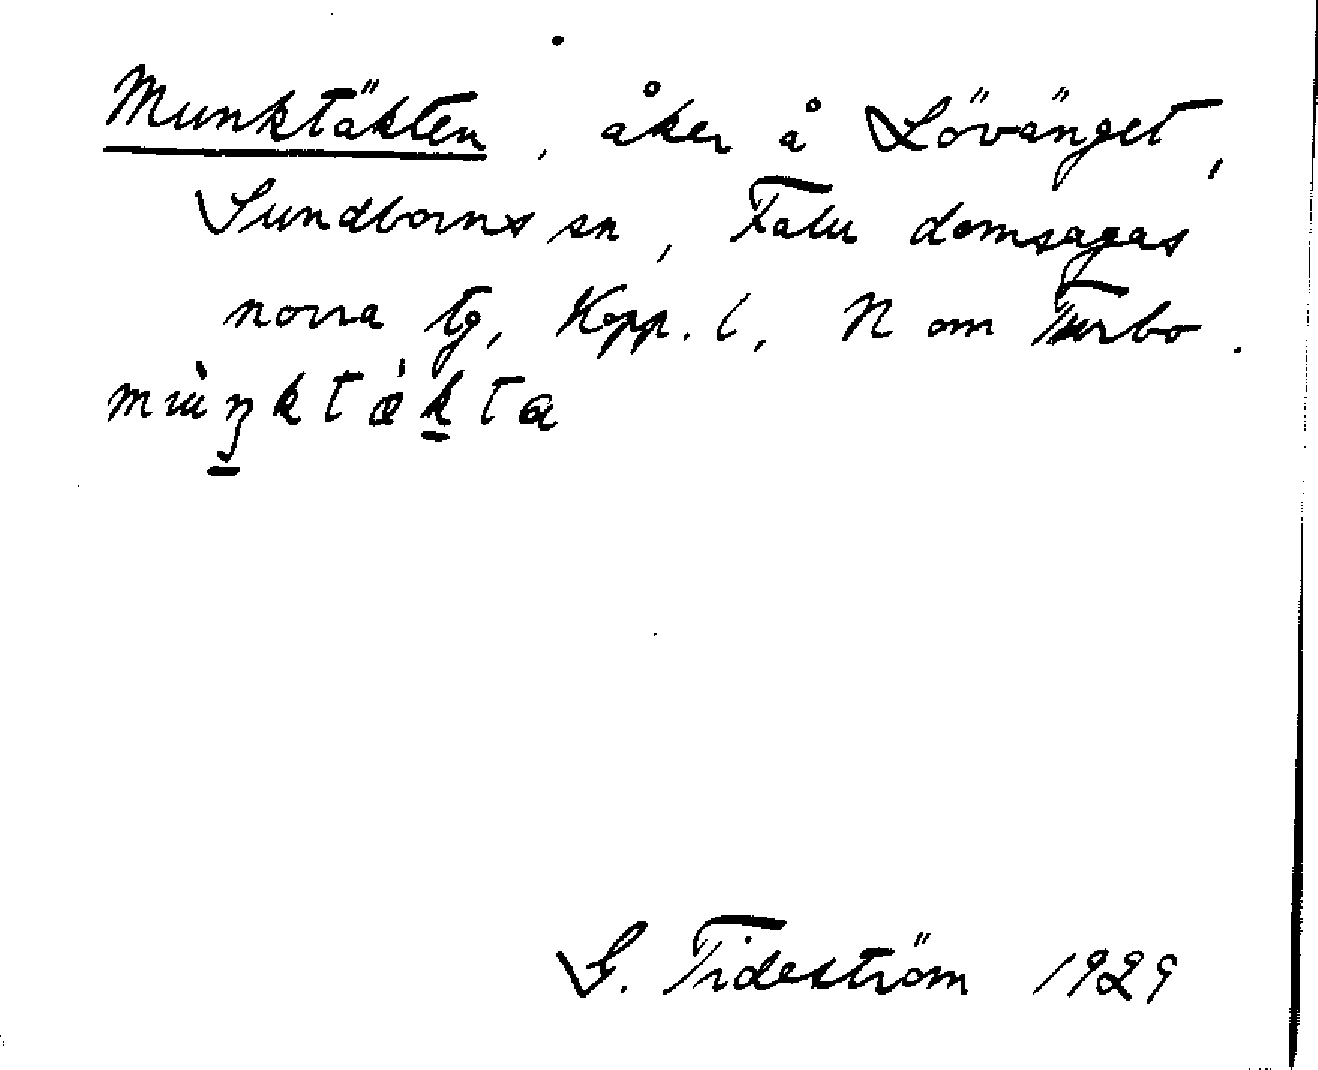 Munktäkten, åker å Lövänget,
Sundborns sn, Falu domsagas
norra tg, Kopp. l, N om Turbo.
mùŋktǽkta
G. Tideström 1929